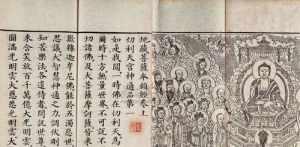 地藏菩薩本願經卷上
忉利天宮神通品第一
如是我聞一時佛在忉利天為
爾時十方無量世界不可說不
切諸佛及大菩薩摩訶薩皆來
歎釋迦牟尼佛能於五濁惡世
思議大智慧神通之力調伏剛
知苦樂法各遣侍者問訊世尊
來含笑放百千萬億大光明雲
圓滿光明雲大慈悲光明雲大